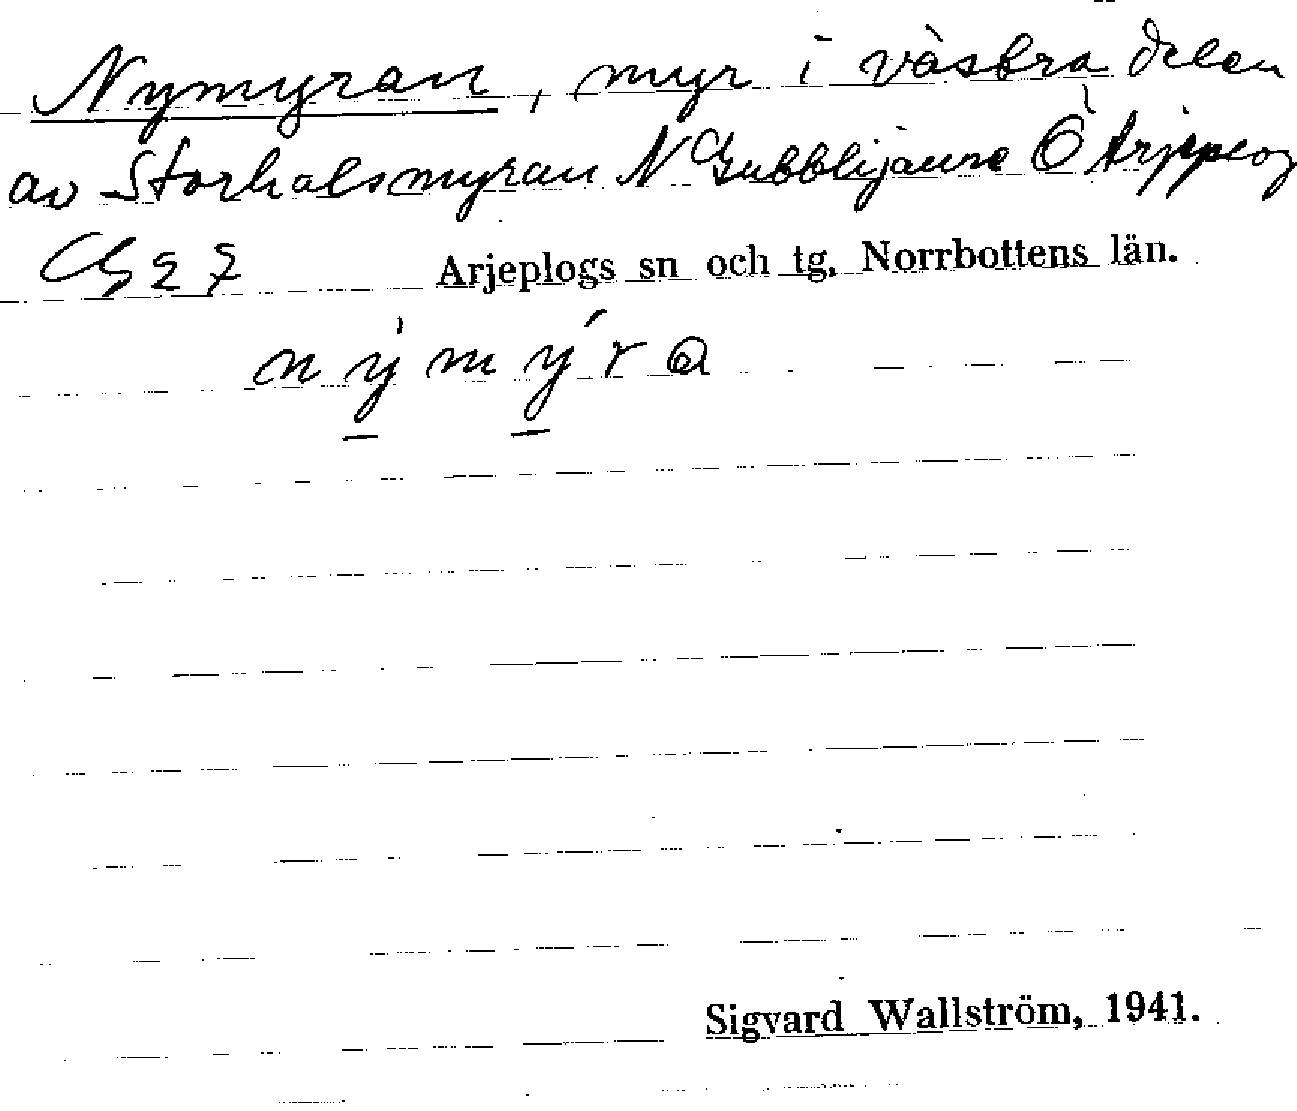 Nymyran, myr i västra delen
av Storholsmyran N Gubblijaure Ö Arjeplog
G 27 Arjeplogs sn och tg, Norrbottens län.
nỳmýra
Sigvard Wallström, 1941.